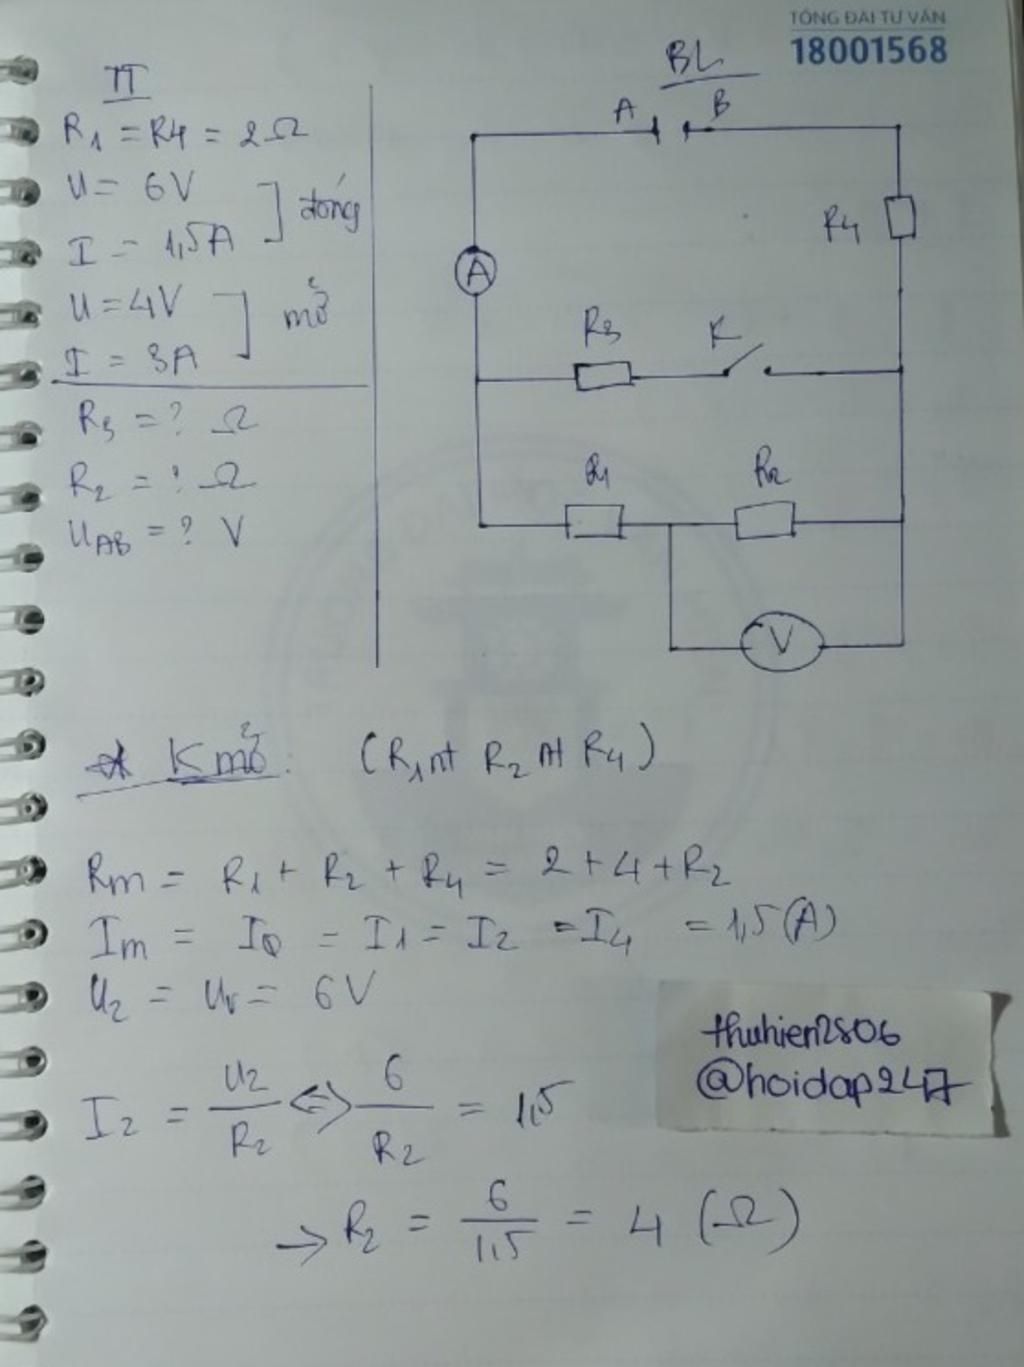 TỔNG ĐÀI TƯ VẤN
18001568
TT
R1 = R4 = 2Ω
U = 6V
I = 1,5A
đóng
U = 4V
I = 3A
mở
R3 = ? Ω
R2 = ? Ω
UAB = ? V
BL
A
B
R4
A
R3
K
R1
R2
V
* K mở: (R1 nt R2 nt R4)
Rm = R1 + R2 + R4 = 2 + 4 + R2
Im = I0 = I1 = I2 = I4 = 1,5(A)
U2 = Uv = 6V
I2 = U2/R2 <=> 6/R2 = 1,5
→ R2 = 6/1,5 = 4 (Ω)
thuhien2806
@hoidap247